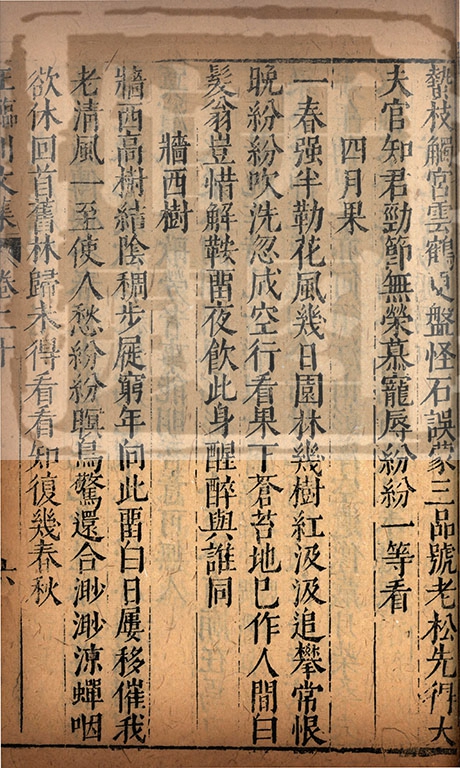 蟄枝觸宮雲鶴更盤怪石誤蒙三品號老松先得大
夫官知君勁節無榮慕寵辱紛紛一等看
四月果
一春强半勒花風幾日園林幾樹紅汲汲追攀常恨
晚紛紛吹洗忽成空行看果下蒼苔地巳作人間白
髮翁豈惜解鞍留夜飲此身醒醉與誰同
牆西樹
牆西高樹結陰稠步屣窮年向此留白日屢移催我
老清風一至使人愁紛紛暝鳥驚還合渺渺涼蟬咽
欲休回首舊林歸未得看看知復幾春秋
王臨川文集 卷二十 六